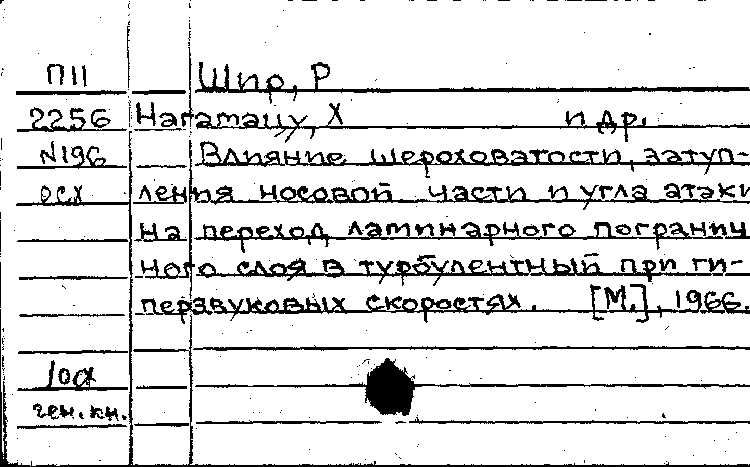 П11 Шир, Р
2256 Нагамацу, Х и др.
N196 Влияние шероховатости, затуп-
осх ления носовой части и угла атаки
на переход ламинарного погранич
ного слоя в турбулентный при ги-
перзвуковых скоростях. [М.], 1966.
10а
ген. кн.